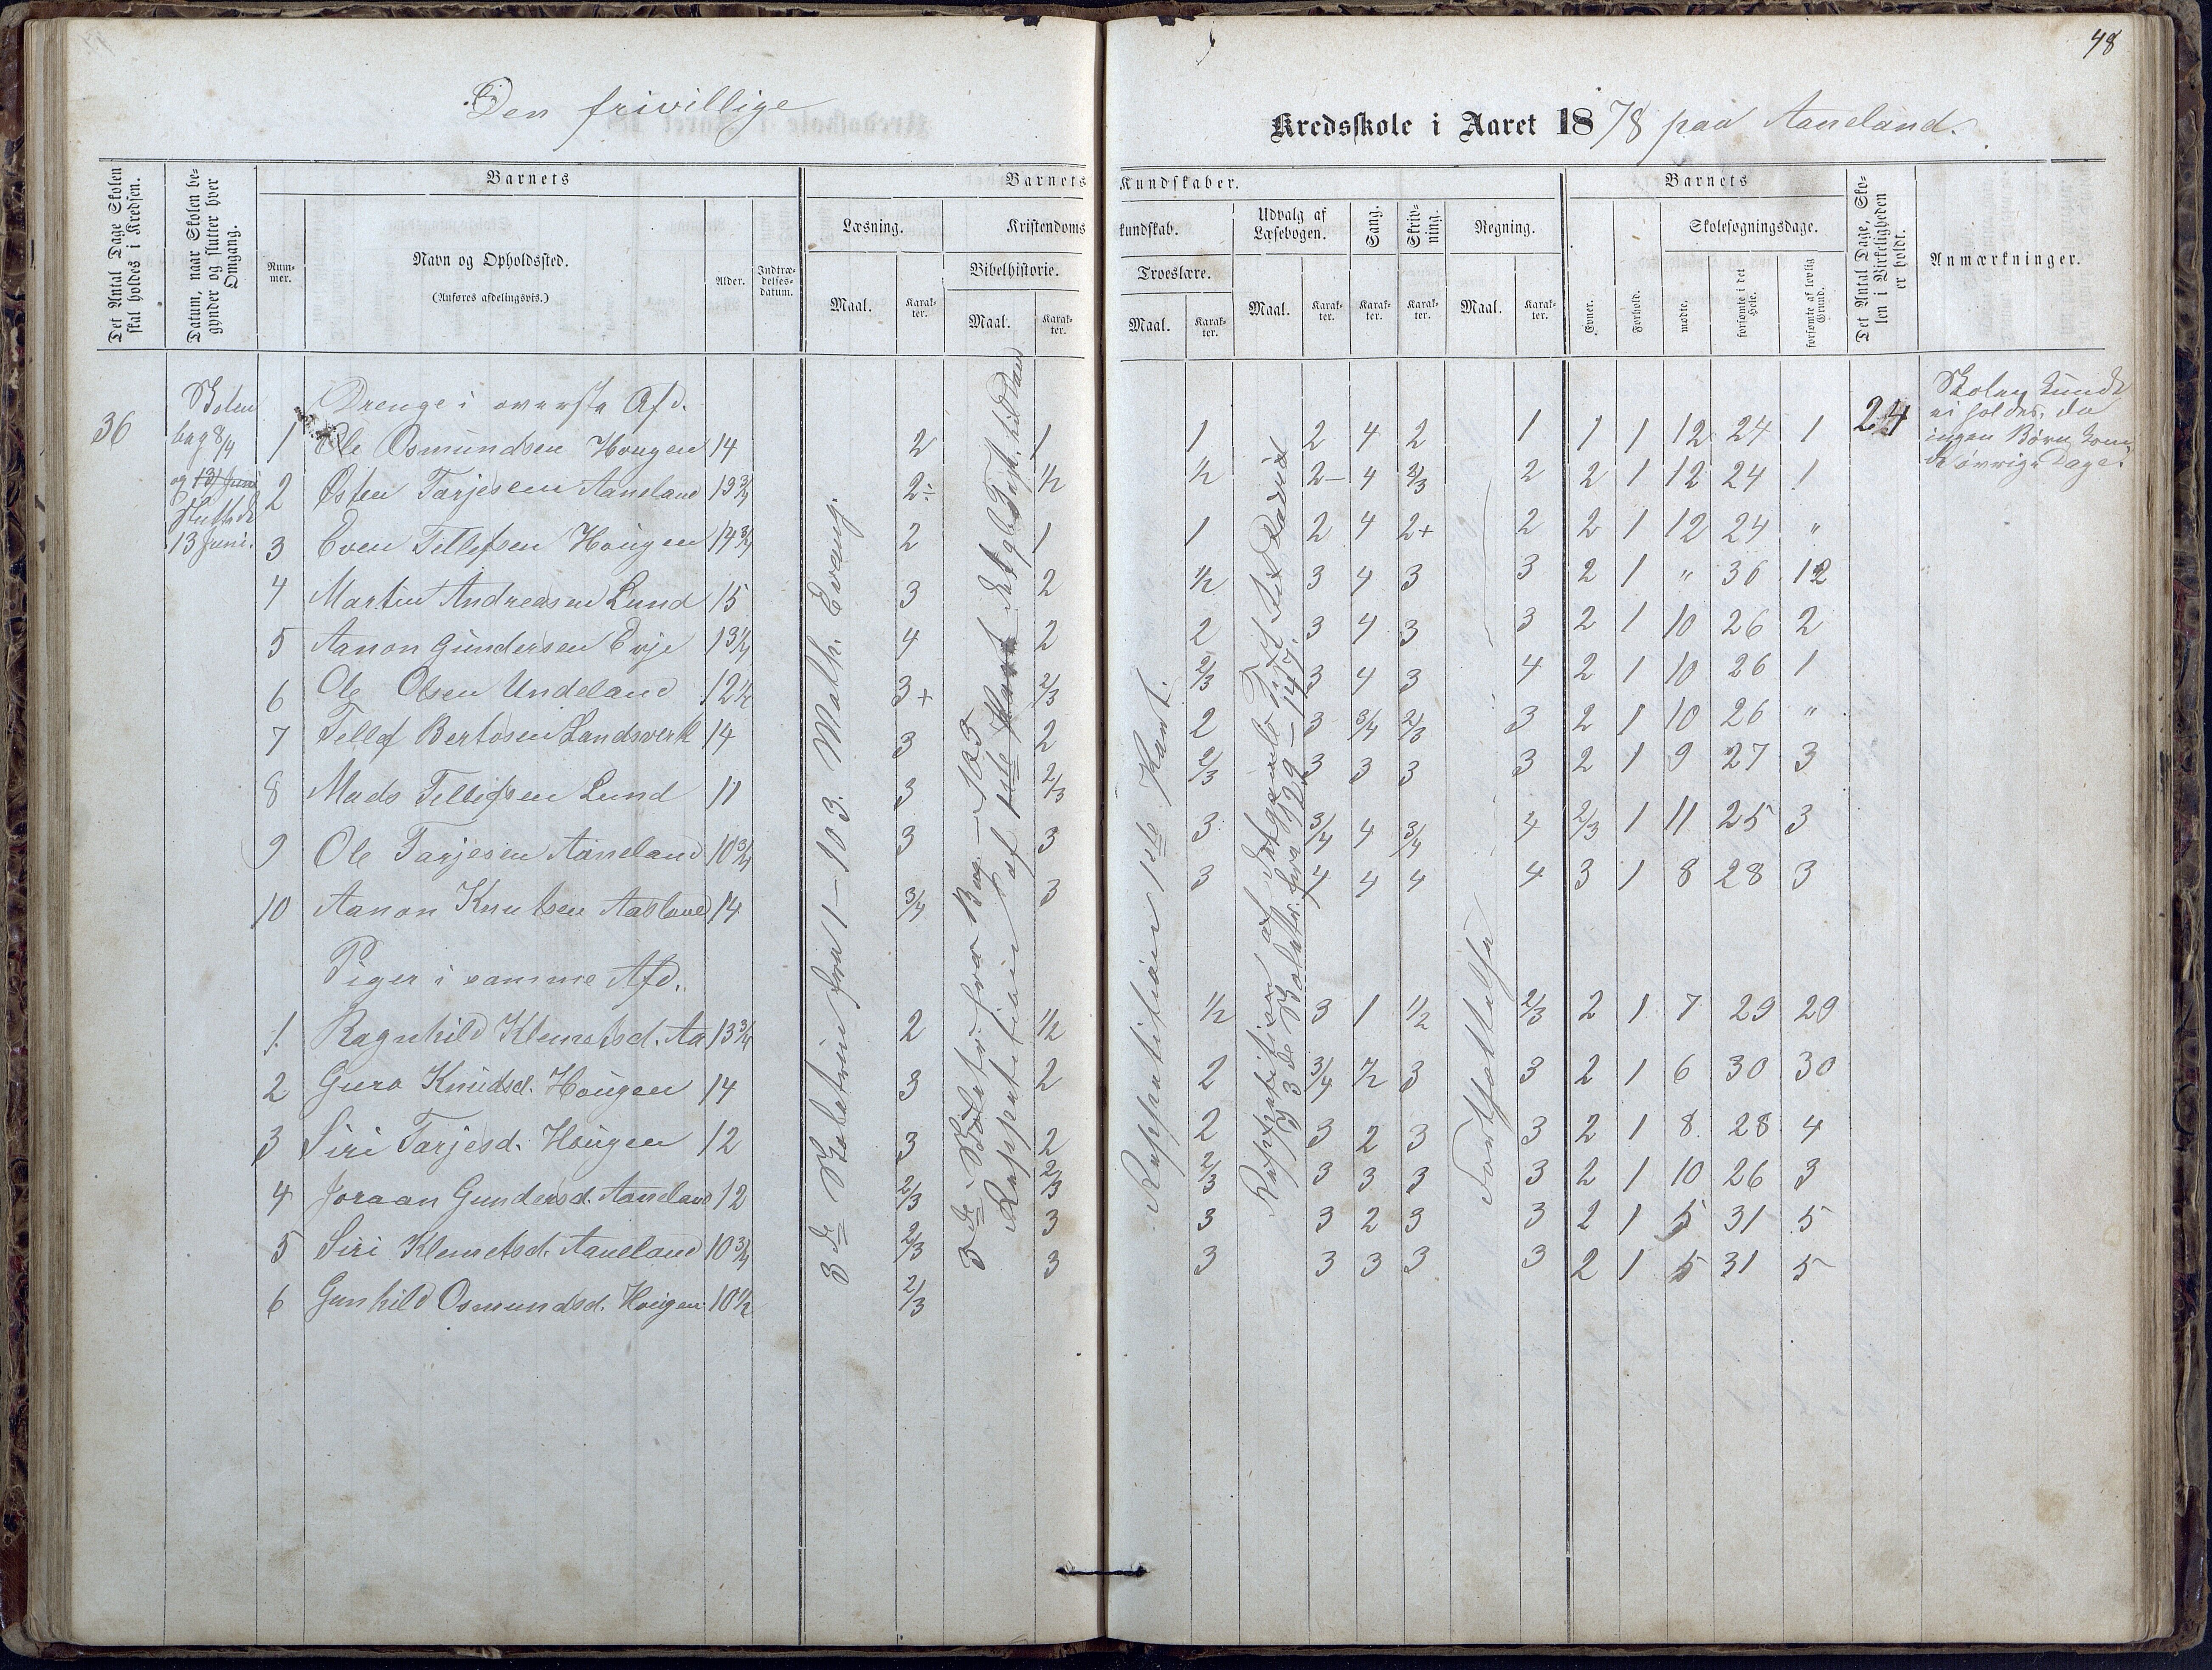 48
Den frivillige
Kredsskole i Aaret 1878 paa Aaneland.
Det Antal Dage Skolen skal holdes i Kredsen.
Datum, naar Skolen begynder og slutter hver Omgang.
Barnets
Nummer.
Navn og Opholdssted.
(Anføres afdelingsvis.)
Alder.
Indtrædelsesdatum.
Barnets Kundskaber.
Læsning.
Maal.
Karakter.
Kristendomskundskab.
Bibelhistorie.
Maal.
Karakter.
Troeslære.
Maal.
Karakter.
Udvalg af Læsebogen.
Maal.
Karakter.
Sang.
Karakter.
Skrivning.
Karakter.
Regning.
Maal.
Karakter.
Barnets
Evner.
Forhold.
Skolesøgningsdage.
mødte.
forsømte i det Hele.
forsømte af lovlig Grund.
Det Antal Dage, Skolen i Virkeligheden er holdt.
Anmærkninger.
36
Skolen
beg 8/4
og 13 Juni
sluttede
13 Juni.
Drenge i øverste Afd.
1 Ole Osmundsen Hougen 14 2 1 1 2 4 2 1 1 1 12 24 1
2 Østen Tarjesen Aaneland 13 3/4 2÷ 1/2 1/2 2- 4 2/3 2 2 1 12 24 1
3 Even Tellefsen Hougen 14 3/4 2 1 1 2 4 2+ 2 2 1 12 24 "
4 Martin Andreasen Lund 15 3 2 1/2 3 4 3 3 2 1 " 36 12
5 Aanon Gundersen Evje 13 1/4 4 2 2 3 4 3 3 2 1 10 26 2
6 Ole Olsen Undeland 12 1/2 3+ 2/3 2/3 3 4 3 4 2 1 10 26 1
7 Tellef Bertosen Landsverk 14 3 2 2 3 3/4 2/3 3 2 1 10 26 "
8 Mads Tellefsen Lund 11 3 2/3 2/3 3 3 3 3 2 1 9 27 3
9 Ole Tarjesen Aaneland 10 3/4 3 3 3 3/4 4 3/4 4 2/3 1 11 25 3
10 Aanon Knutsen Aasland 14 3/4 3 3 4 4 4 4 3 1 8 28 3
Piger i samme Afd.
1 Ragnhild Klemetsd. Aa 13 3/4 2 1/2 1/2 3 1 1/2 2/3 2 1 7 29 29
2 Guro Knudsd. Hougen 14 3 2 2 3/4 1/2 3 3 2 1 6 30 30
3 Siri Tarjesd. Hougen 12 3 2 2 3 2 3 3 2 1 8 28 4
4 Joraan Gundersd. Aaneland 12 2/3 2/3 2/3 3 3 3 3 2 1 10 26 3
5 Siri Klemetsd. Aaneland 10 3/4 2/3 3 3 3 2 3 3 2 1 5 31 5
6 Gunhild Osmundsd. Hougen 10 1/2 2/3 3 3 3 3 3 3 2 1 5 31 5
3de Skoletrin fra 1 - 103. Math. Evang.
3de Skoletr. fra Bog - 125
Reppetition af 1ste Part det gle Test. til David
Reppetition 1ste Part.
Reppetition af det gamle Test. til David
og 3de Skoletr. fra 129 - 147.
Fortsættelse
24
Skolen kunde
ei holdes, da
ingen Børn kom
de øvrige Dage.